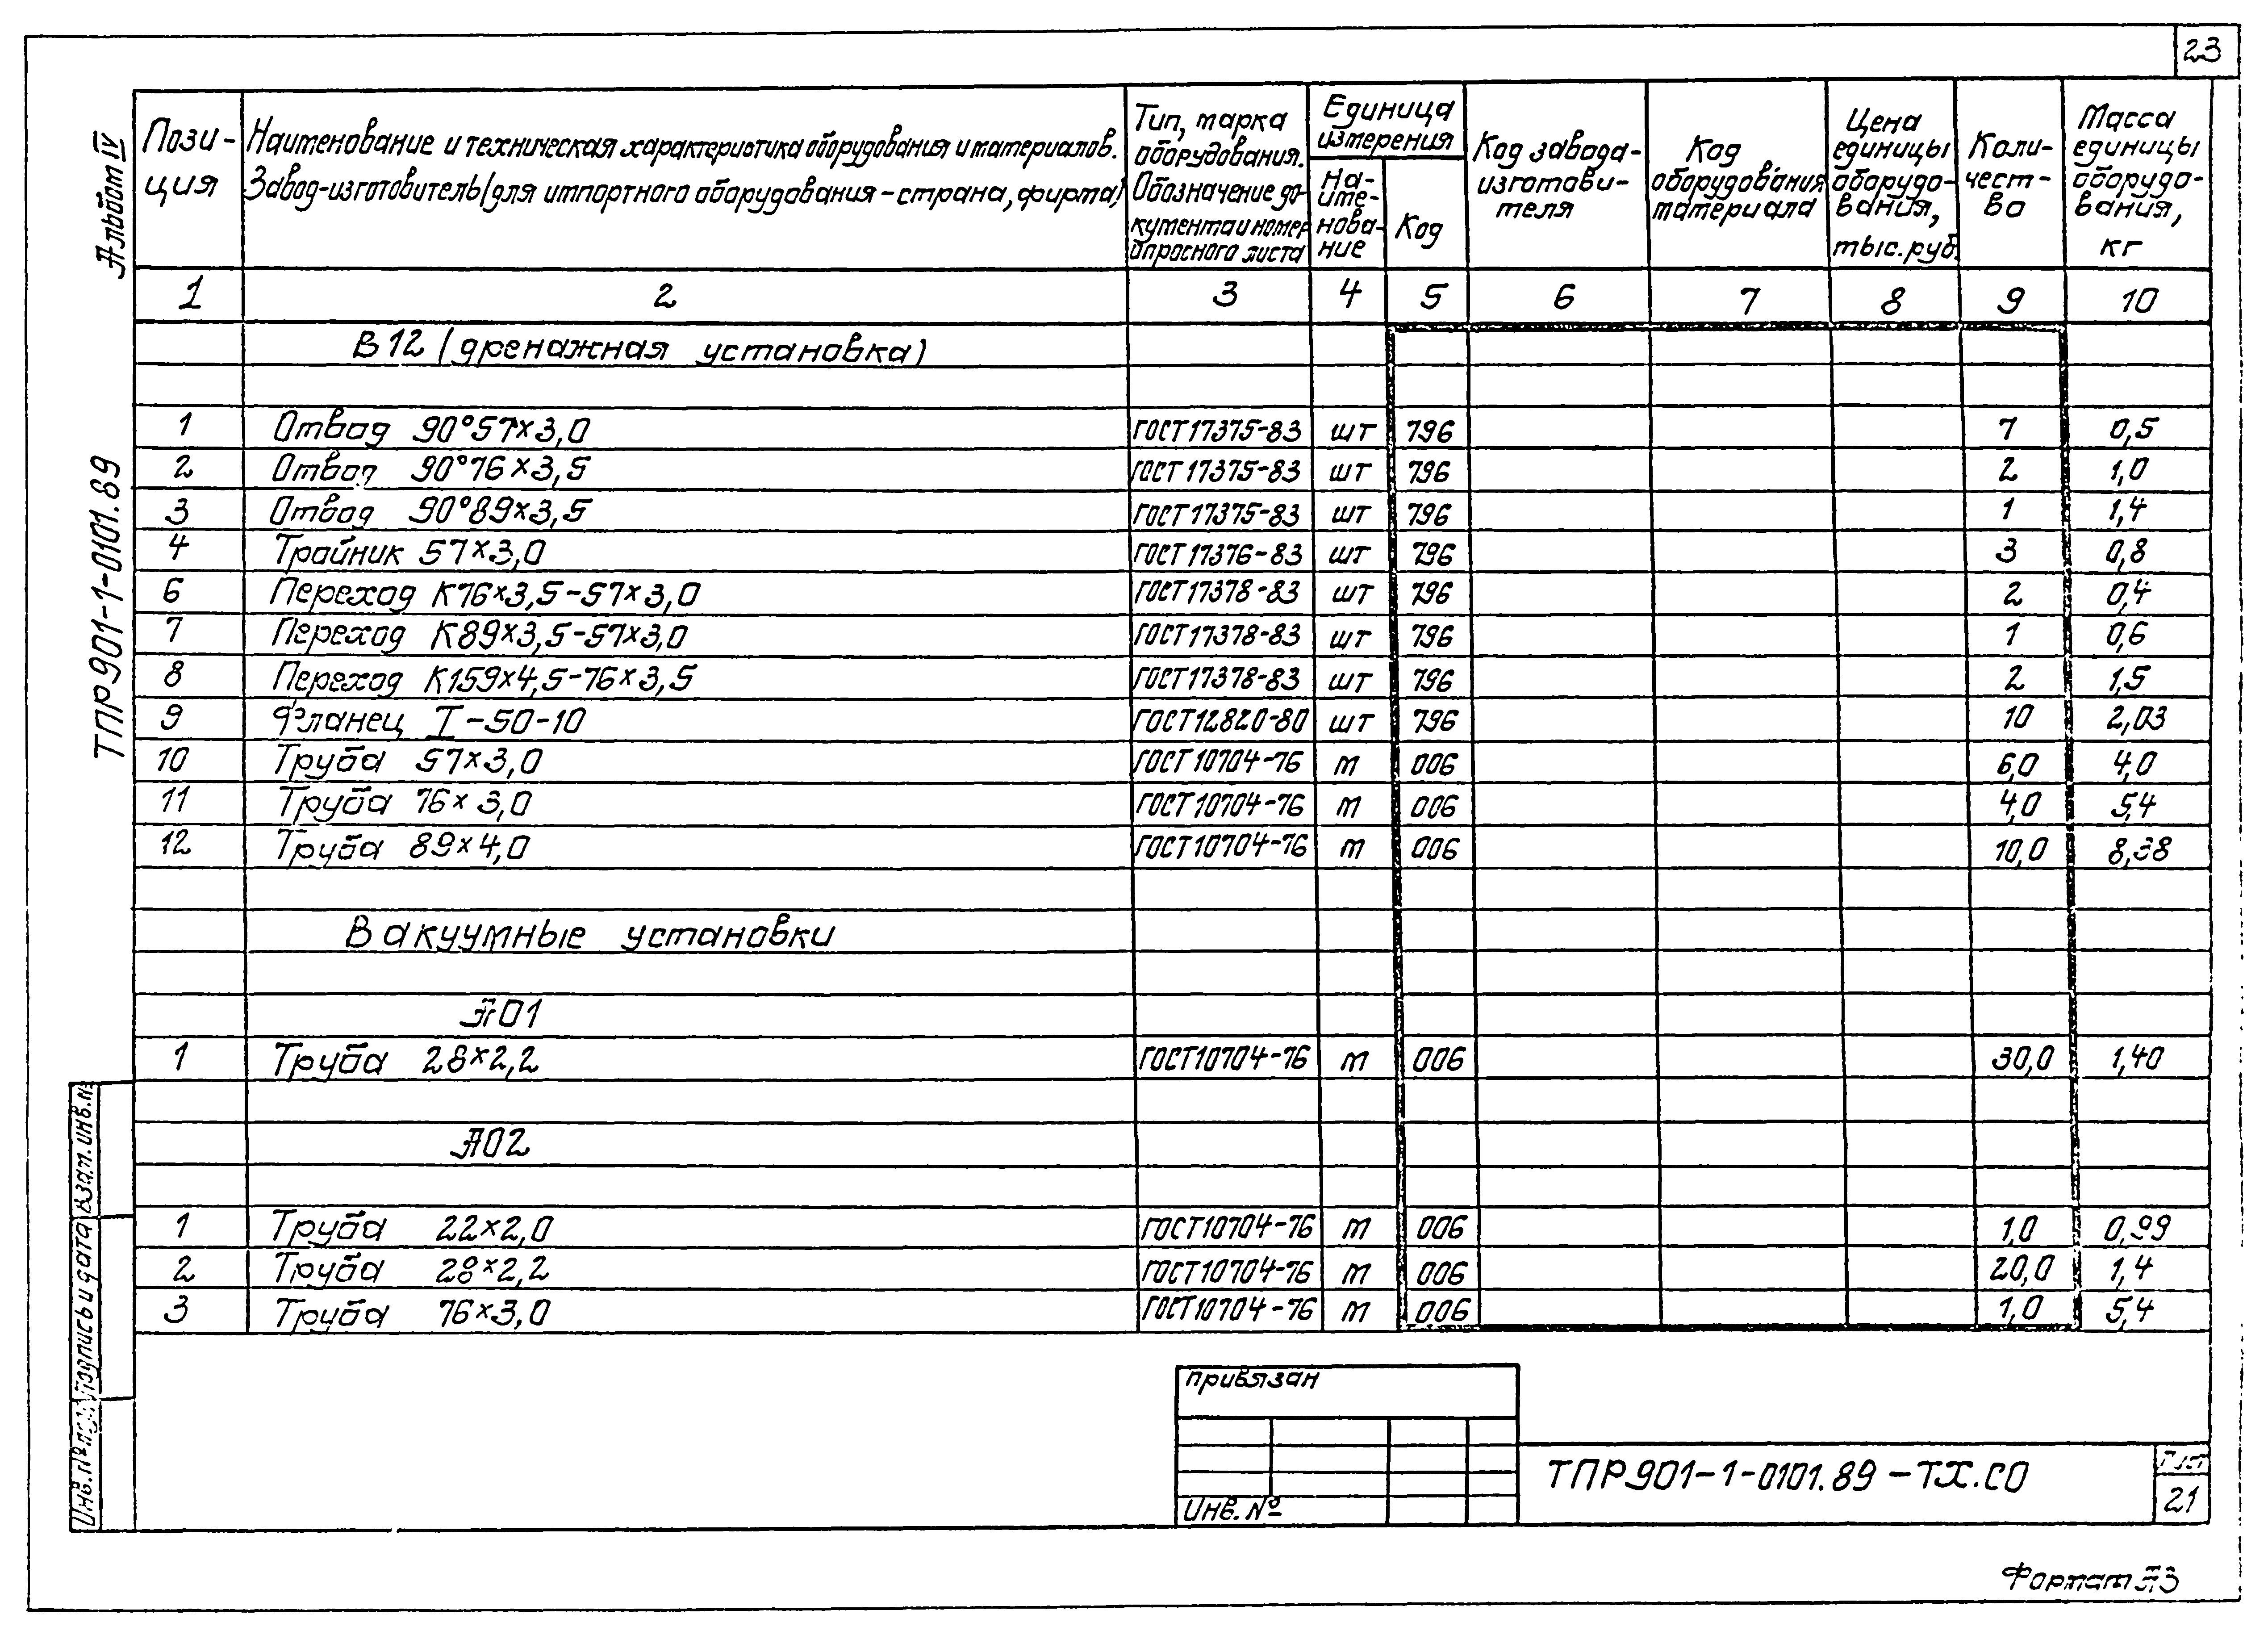 23
Альбом IV
ТПР901-1-0101.89
Пози-
ция
Наименование и техническая характеристика оборудования и материалов.
Завод-изготовитель (для импортного оборудования-страна, фирма)
Тип, марка
оборудования.
Обозначение до-
кумента и номер
опросного листа
Единица
измерения
На-
име-
нова-
ние
Код
Код завода-
изготови-
теля
Код
оборудования
материала
Цена
единицы
оборудо-
вания,
тыс.руб.
Коли-
чест-
во
Масса
единицы
оборудо-
вания,
кг
1 2 3 4 5 6 7 8 9 10
В12 (дренажная установка)
1 Отвод 90°57×3,0 ГОСТ17375-83 шт 796 7 0,5
2 Отвод 90°76×3,5 ГОСТ17375-83 шт 796 2 1,0
3 Отвод 90°89×3,5 ГОСТ17375-83 шт 796 1 1,4
4 Тройник 57×3,0 ГОСТ17376-83 шт 796 3 0,8
6 Переход К76×3,5-57×3,0 ГОСТ17378-83 шт 796 2 0,4
7 Переход К89×3,5-57×3,0 ГОСТ17378-83 шт 796 1 0,6
8 Переход К159×4,5-76×3,5 ГОСТ17378-83 шт 796 2 1,5
9 Фланец I-50-10 ГОСТ12820-80 шт 796 10 2,03
10 Труба 57×3,0 ГОСТ10704-76 м 006 6,0 4,0
11 Труба 76×3,0 ГОСТ10704-76 м 006 4,0 5,4
12 Труба 89×4,0 ГОСТ10704-76 м 006 10,0 8,38
Вакуумные установки
А01
1 Труба 28×2,2 ГОСТ10704-76 м 006 30,0 1,40
А02
1 Труба 22×2,0 ГОСТ10704-76 м 006 1,0 0,99
2 Труба 28×2,2 ГОСТ10704-76 м 006 20,0 1,4
3 Труба 76×3,0 ГОСТ10704-76 м 006 1,0 5,4
Взам.инв.№
Подпись и дата
Инв.№ подл.
привязан
Инв.№
ТПР901-1-0101.89-ТХ.СО
Лист
21
Формат А3